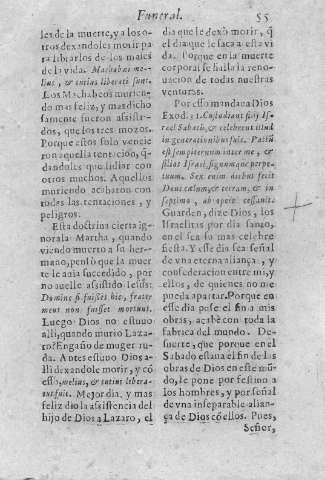 Funeral. 55
les de la muerte, y a los o-
tros dexandoles morir pa
ra librarlos de los males
de la vida. Machabæi me-
lius, & tutius liberati sunt.
Los Machabeos murien-
do mas feliz, y mas dicho
samente fueron assisti-
dos, que los tres mozos.
Porque estos solo vencie
ron aquella tentacion, q̃-
dandoles que lidiar con
otros muchos. Aquellos
moriendo acabaron con
todas las tentaciones, y
peligros.
Esta doctrina cierta ig-
norala Martha, quando
viendo muerto a su her-
mano, pensò que la muer
te le auia succedido, por
no auelle assistido Iesus:
Domine si fuisses hic, frater
meus non fuisset mortuus.
Luego Dios no estuuo
alli, quando murio Laza-
ro? Engaño de muger ru-
da. Antes estuuo Dios a-
lli dexandole morir, y cõ
esso, melius, & tutius libera-
tus fuit. Mejor dia, y mas
feliz dio la assistencia del
hijo de Dios a Lazaro, el
dia que le dexò morir, q̃
el dia que le saca a esta vi
da. Porque en la muerte
corporal se halla la reno-
uacion de todas nuestras
venturas.
Por esso mandaua Dios
Exod. 31. Custodiant filij Is-
rael Sabatũ, & celebrent illud
in generationibus suis. Pactũ
est sempiternum inter me, &
filios Israel, signumque perpe-
tuum. Sex enim diebus fecit
Deus cælum, & terram, & in
septimo, ab opere cessauit.
Guarden, dize Dios, los
Israelitas por dia santo,
en el sea su mas celebre
fiesta. Y este dia sea señal
de vna eterna aliança, y
confederacion entre mi, y
ellos, de quienes no me
pueda apartar. Porque en
este dia puse el fin a mis
obras, acabè con toda la
fabrica del mundo. De-
suerte, que porque en el
Sabado estaua el fin de las
obras de Dios en este mũ-
do, le pone por festino a
los hombres, y por señal
de vna inseparable alian-
ça de Dios cõ ellos. Pues,
Señor,